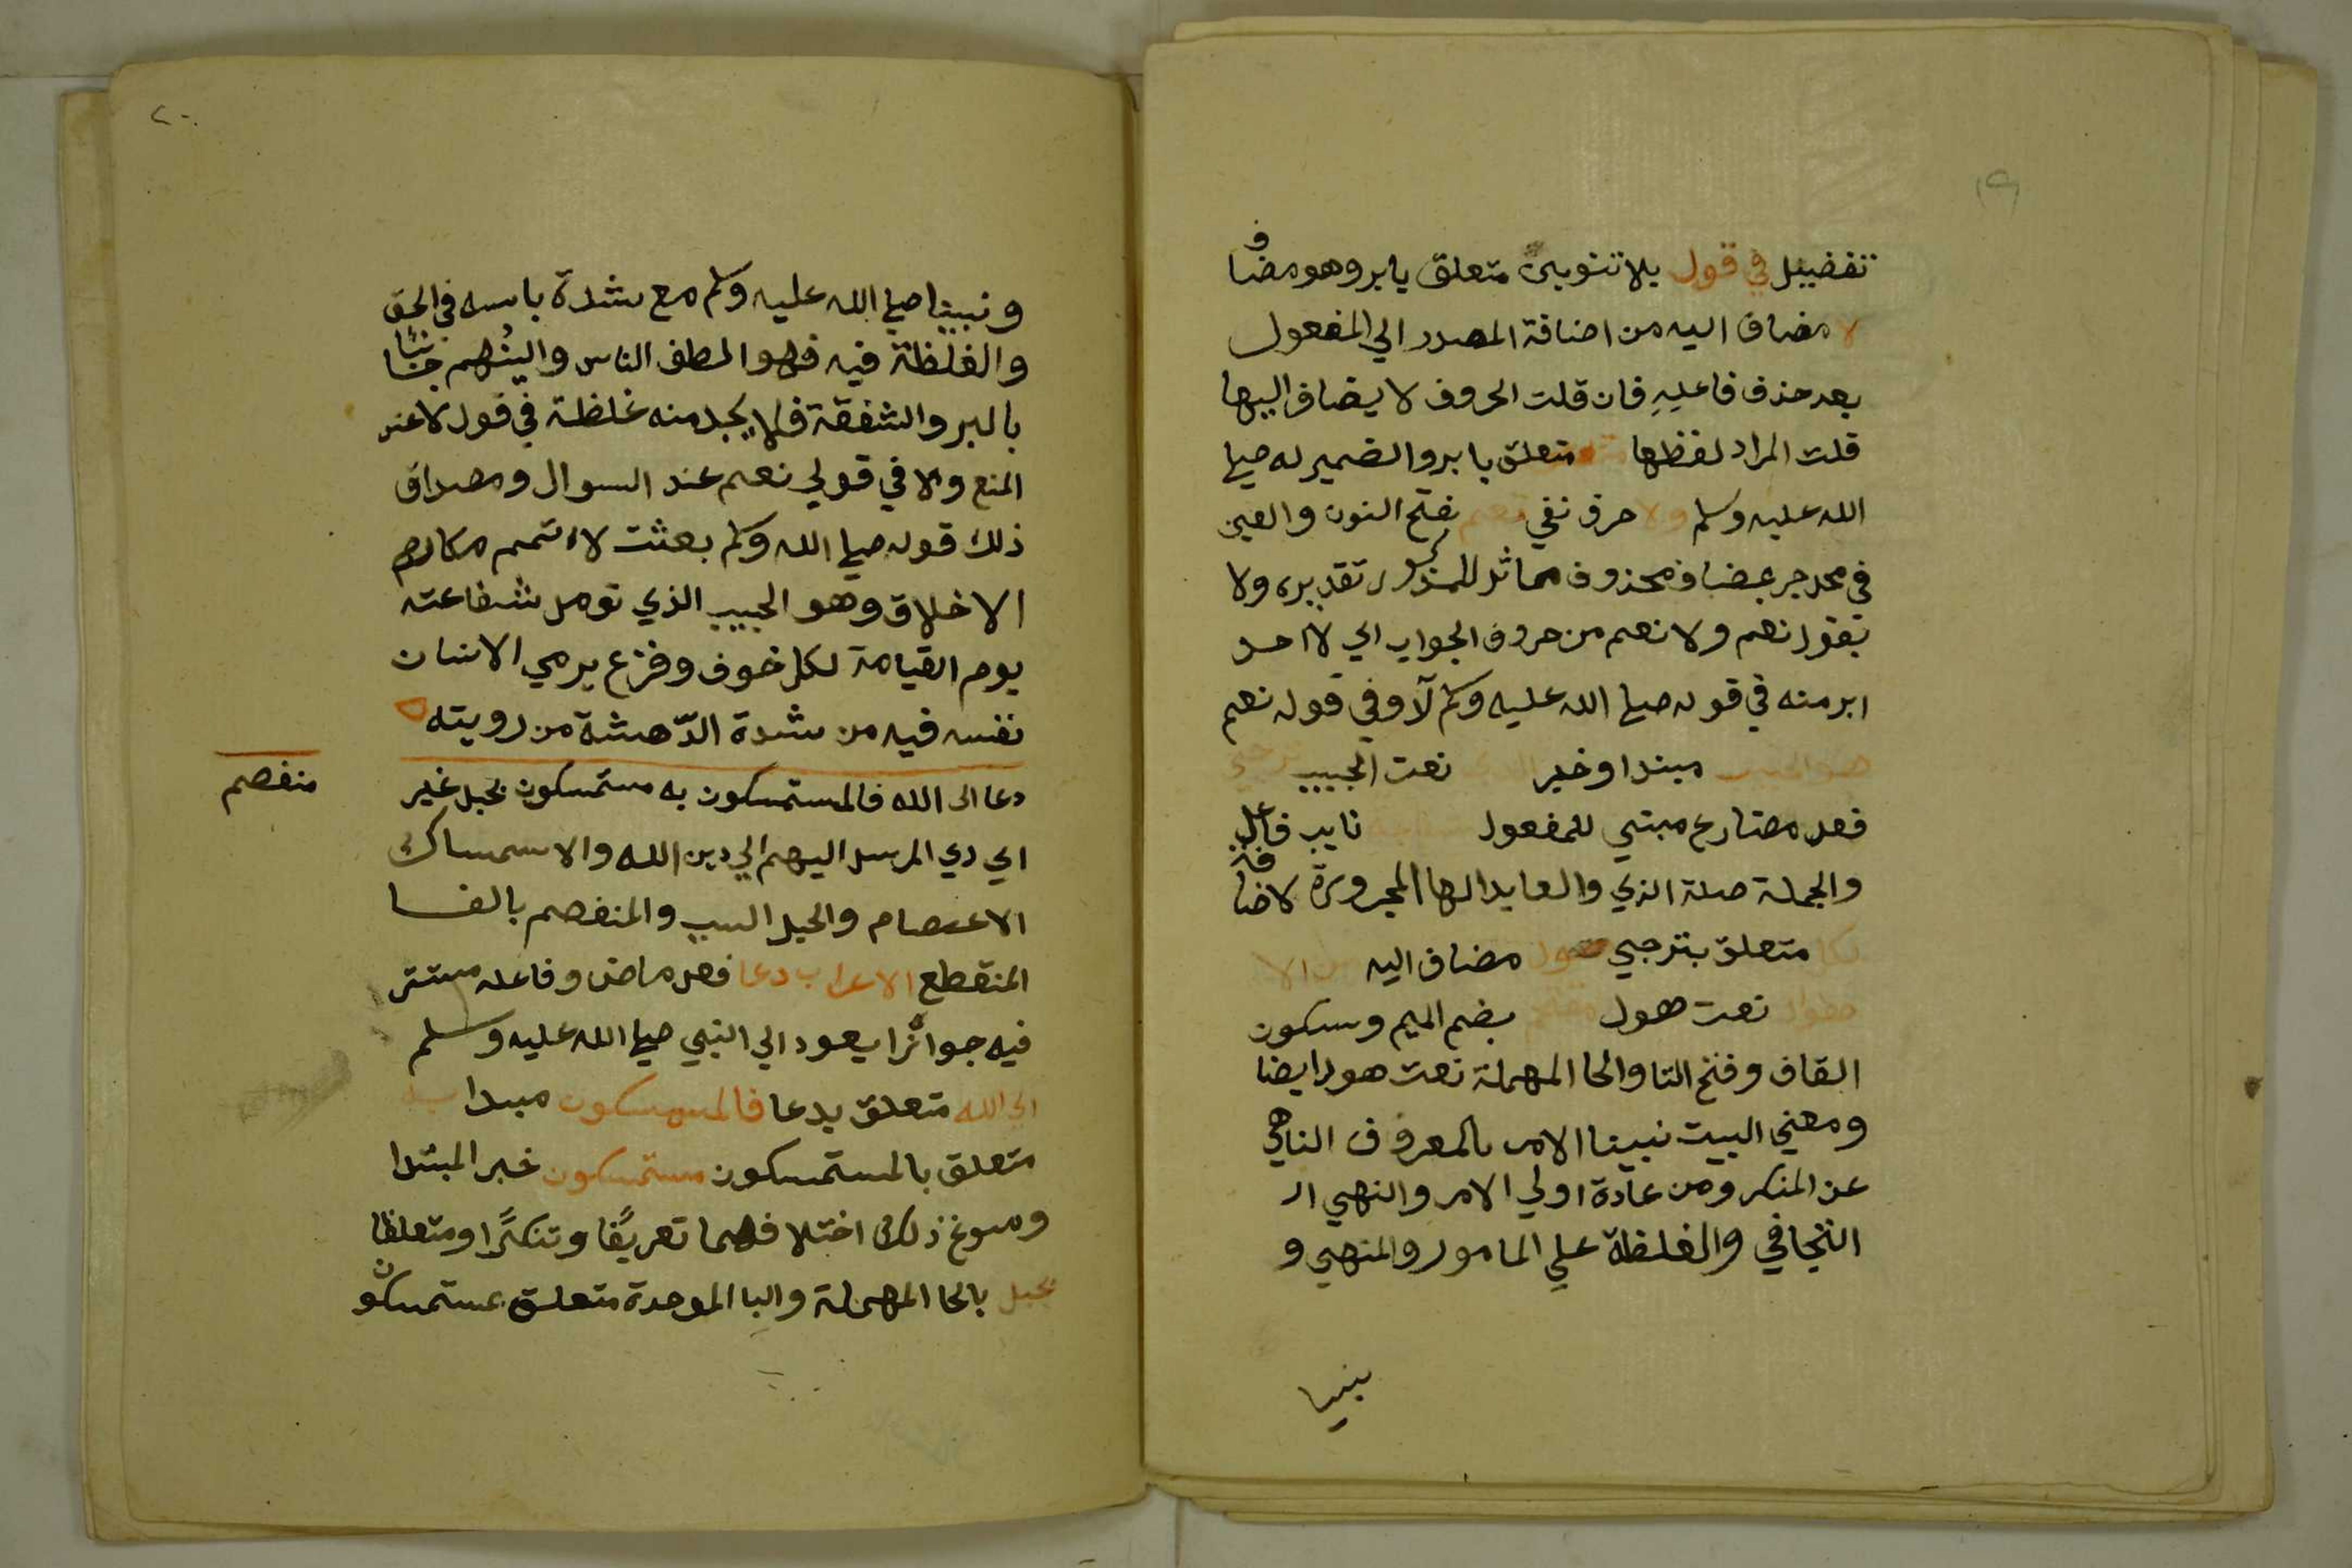 ١٩
تفضيل في قول بلا تنوين متعلق بابر وهو مضاف
لا مضاف اليه من اضافة المصدر الي المفعول
بعد حذف فاعله فان قلت الحروف لا يضاف اليها
قلت المراد لفظها متعلق بابر والضمير له صلي
الله عليه وسلم ولا حرف نفي نعم بفتح النون والعين
في محل جر بمضاف محذوف مماثل للمذكور تقديره ولا
بقول نعم ولا نعم من حروف الجواب اي لا احد
ابر منه في قوله صلي الله عليه وسلم لا وفي قوله نعم
هو الحبيب مبتدا وخبر الذي نعت الحبيب ترجي
فعل مضارع مبني للمفعول شفاعته نايب فاعل
والجملة صلة الذي والعايد الها المجرورة لاضافة
لكل متعلق بترجي هول مضاف اليه من الا
هوال نعت هول مقتحم بضم الميم وسكون
القاف وفتح التا والحا المهملة نعت هول ايضا
ومعني البيت نبينا الامر بالمعروف الناهي
عن المنكر ومن عادة اولي الامر والنهي ال
التجافي والغلظة علي المامور والمنهي و
نبينا
٢٠
ونبينا صلي الله عليه وسلم مع شدة باسه في الحق
والغلظة فيه فهو الطف الناس والينهم جنابا
بالبر والشفقة فلا يجد منه غلظة في قول لا عند
المنع ولا في قولي نعم عند السوال ومصداق
ذلك قوله صلي الله وسلم بعثت لاتمم مكارم
الاخلاق وهو الحبيب الذي تومل شفاعته
يوم القيامة لكل خوف وفزع يرمي الانسان
نفسه فيه من شدة الدّهشة من رويته
دعا الى الله فالمستمسكون به مستمسكون بحبل غير
منفصم
اي دي المرسل اليهم الي دين الله والاستمساك
الاعتصام والحبل السبب والمنفصم بالفا
المنقطع الاعراب دعا فعل ماض وفاعله مستتر
فيه جوائزا يعود الي النبي صلي الله عليه وسلم
الي الله متعلق بدعا فالمستمسكون مبتدا به
متعلق بالمستمسكون مستمسكون خبر المبتدا
ومسوغ ذلك اختلافهما تعريفًا وتنكرًا ومتعلقا
بحبل بالحا المهملة والبا الموحدة متعلق بمستمسكون